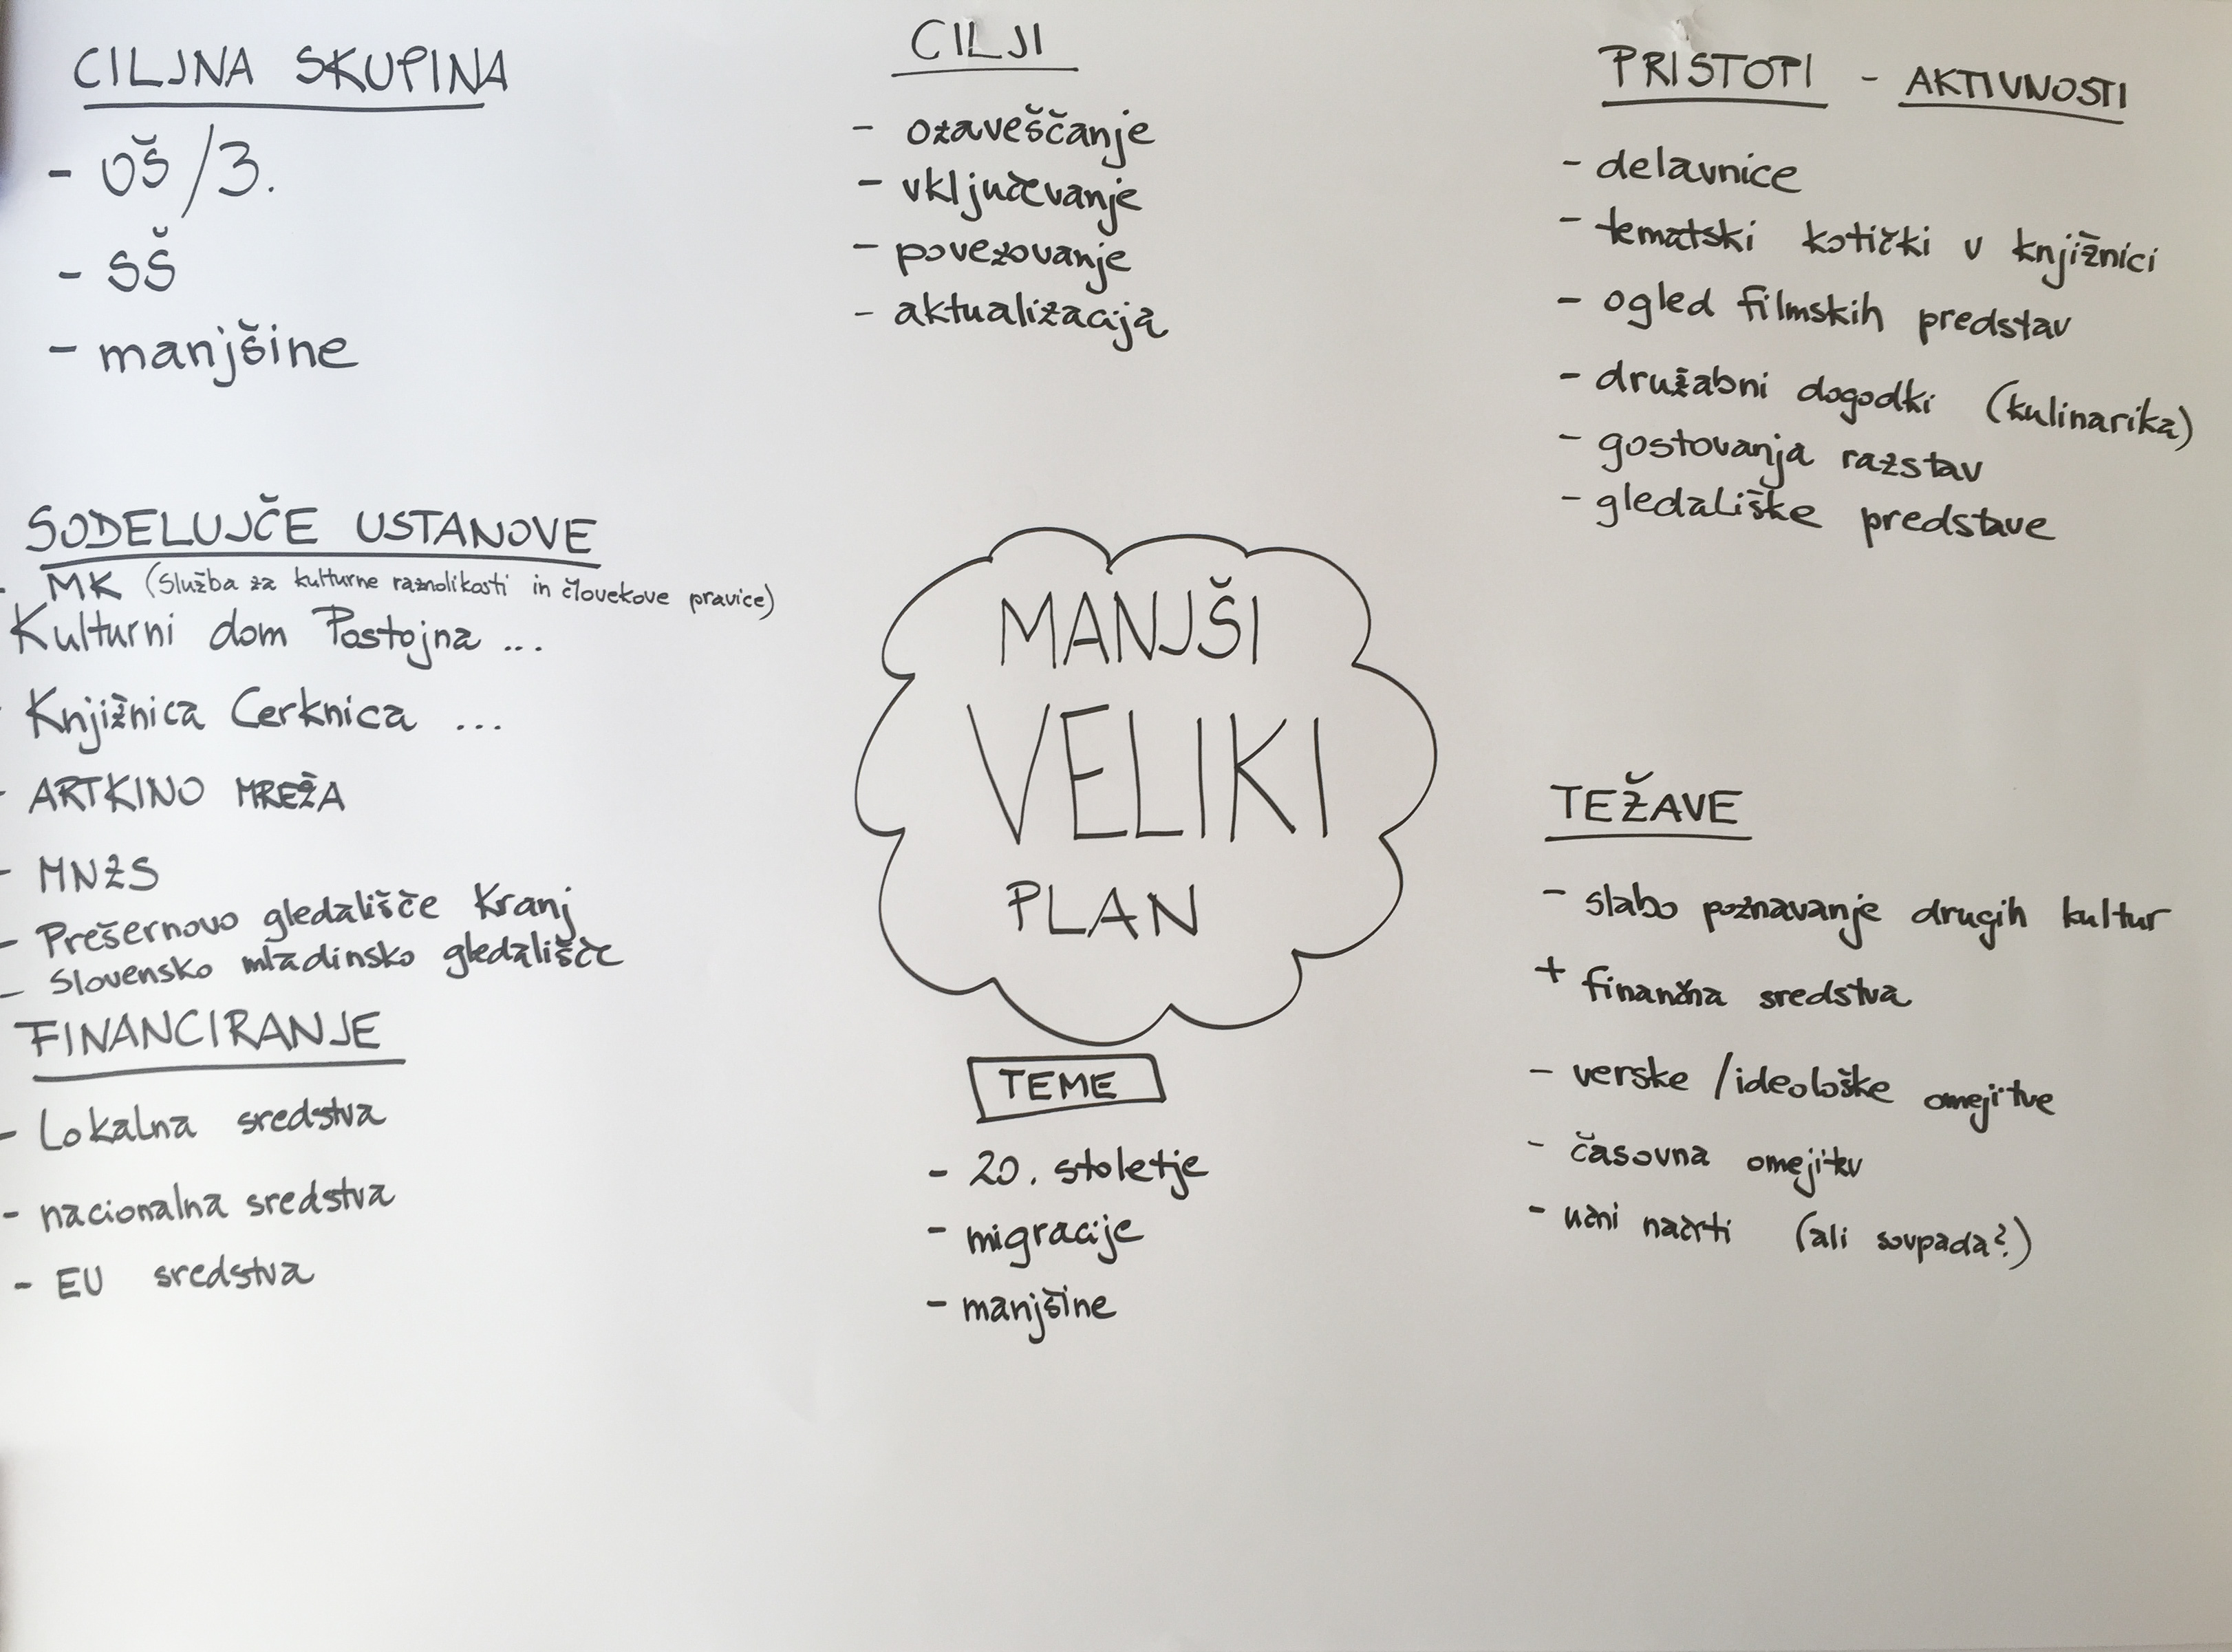 CILJNA SKUPINA
- OŠ /3.
- SŠ
- manjšine
CILJI
- ozaveščanje
- vključevanje
- povezovanje
- aktualizacija
PRISTOPI - AKTIVNOSTI
- delavnice
- tematski kotički v knjižnici
- ogled filmskih predstav
- družabni dogodki (kulinarika)
- gostovanja razstav
- gledališke predstave
SODELUJČE USTANOVE
- MK (Služba za kulturne raznolikosti in človekove pravice)
Kulturni dom Postojna ...
- Knjižnica Cerknica ...
- ARTKINO MREŽA
- MNZS
- Prešernovo gledališče Kranj
- Slovensko mladinsko gledališče
FINANCIRANJE
- Lokalna sredstva
- nacionalna sredstva
- EU sredstva
MANJŠI
VELIKI
PLAN
TEME
- 20. stoletje
- migracije
- manjšine
TEŽAVE
- slabo poznavanje drugih kultur
+ finančna sredstva
- verske /ideološke omejitve
- časovna omejitev
- učni načrti (ali sovpada?)